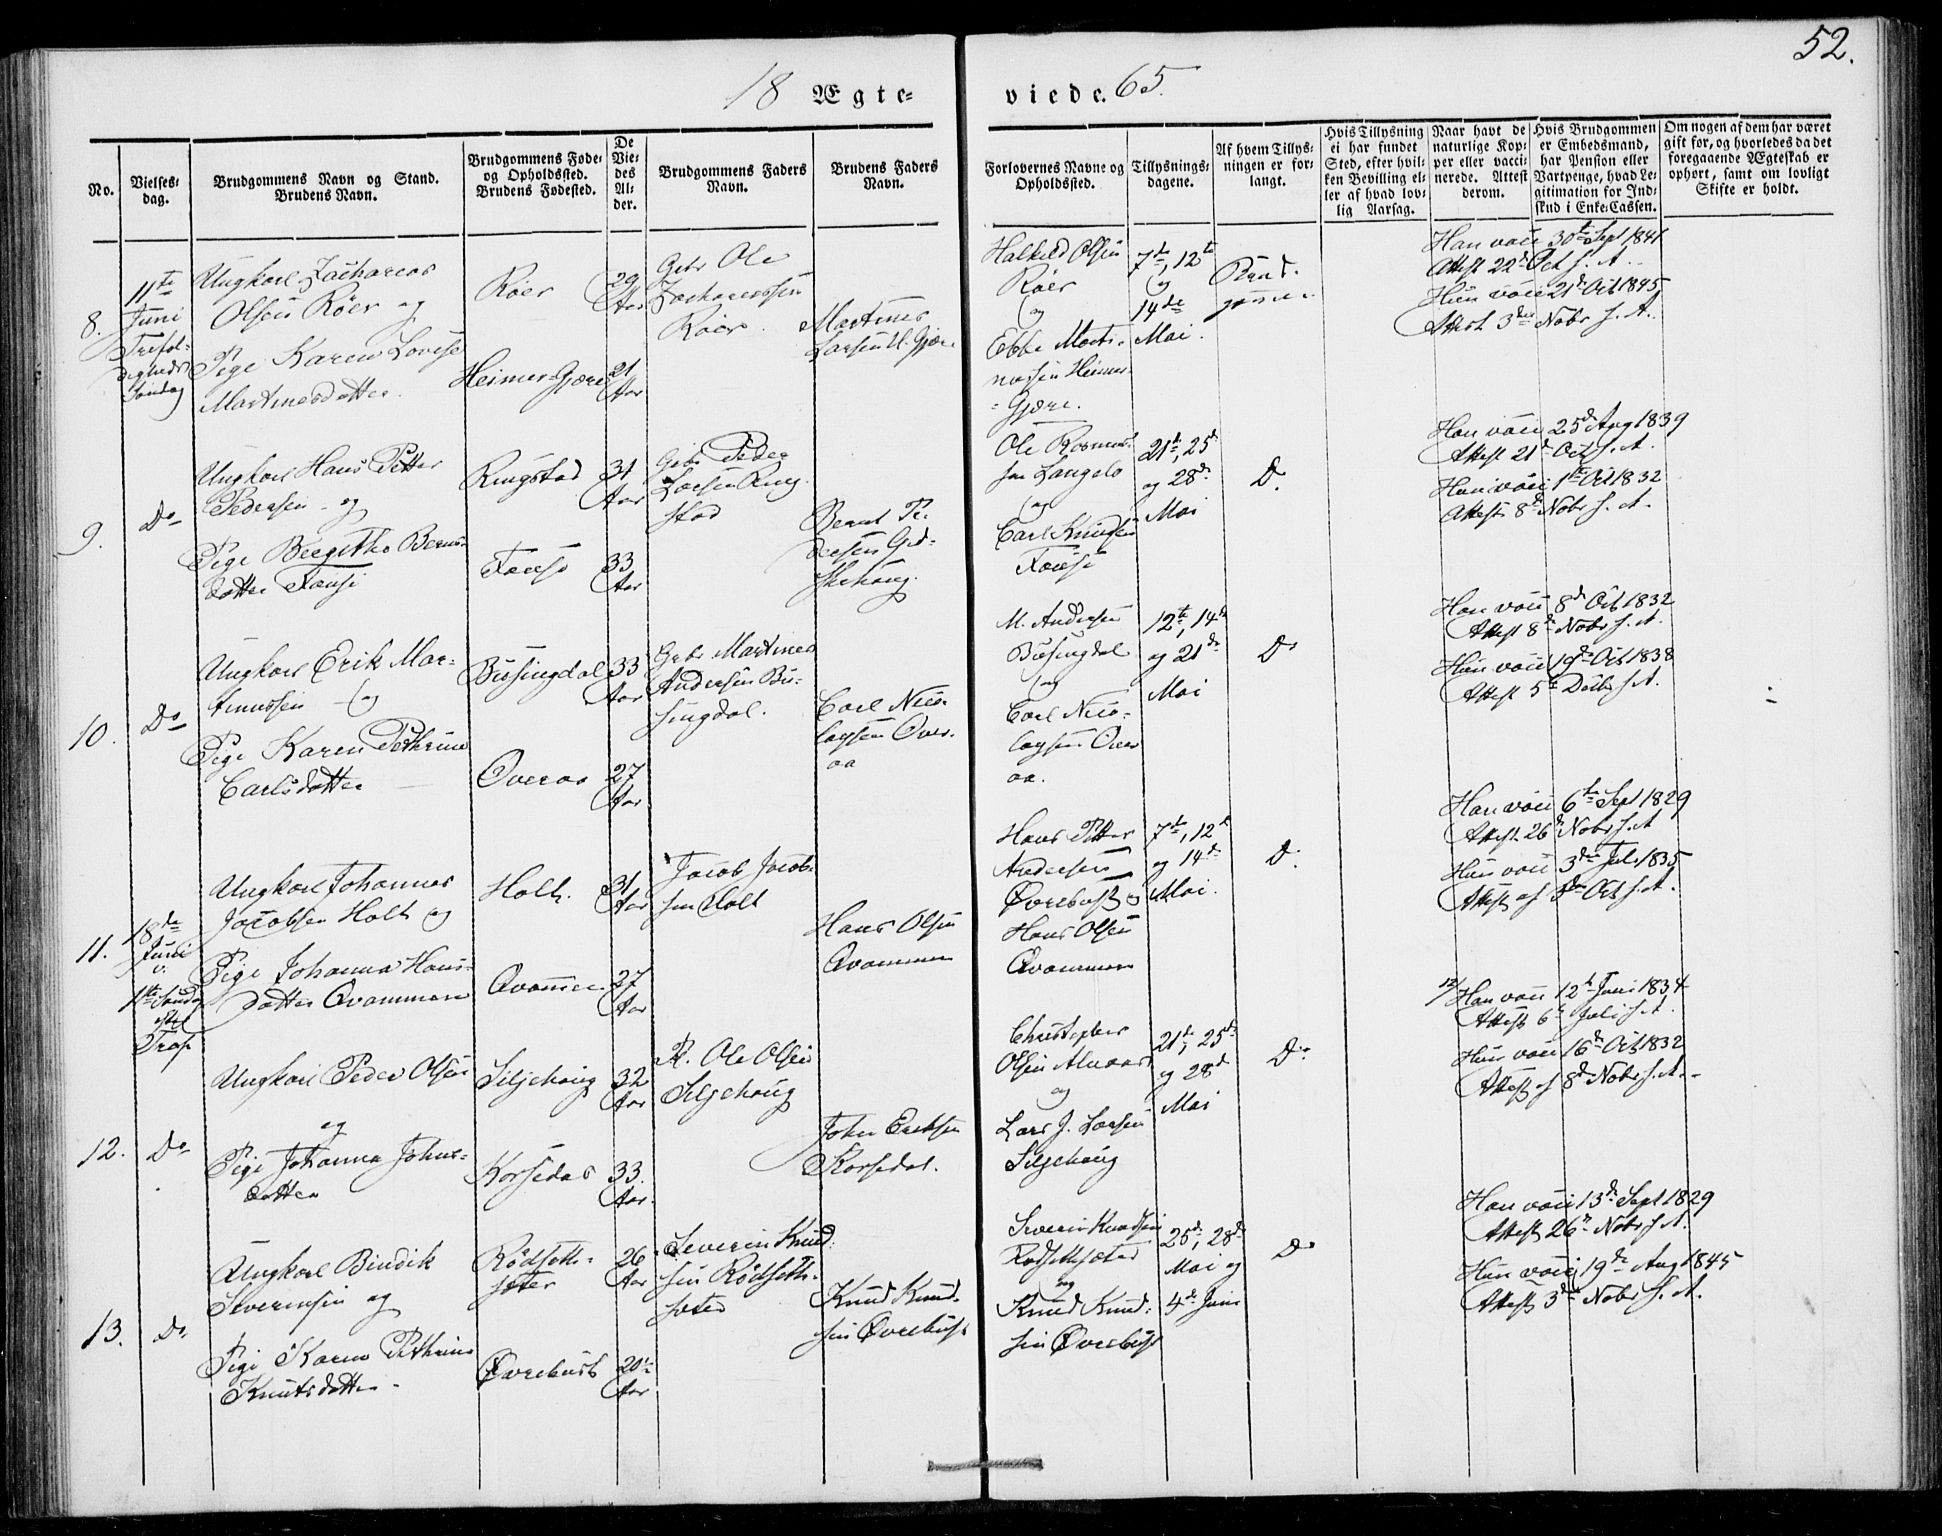 52.
18 Ægte- viede. 65.
No.
Vielses-
dag.
Brudgommens Navn og Stand.
Brudens Navn.
Brudgommens Føde-
og Opholdssted.
Brudens Fødested.
De
Vie-
des
Al-
der.
Brudgommens Faders
Navn.
Brudens Faders
Navn.
Forlovernes Navne og
Opholdssted.
Tillysnings-
dagene.
Af hvem Tillys-
ningen er for-
langt.
Hvis Tillysning
ei har fundet
Sted, efter hvil-
ken Bevilling el-
ler af hvad lov-
lig Aarsag.
Naar havt de
naturlige Kop-
per eller vacci-
nerede. Attest
derom.
Hvis Brudgommen
er Embedsmand,
har Pension eller
Vartpenge, hvad Le-
gitimation for Ind-
skud i Enke-Cassen.
Om nogen af dem har været
gift før, og hvorledes da det
foregaaende Ægteskab er
ophørt, samt om lovligt
Skifte er holdt.
8.
11te
Juni
Trefol-
digheds
Søndag
Ungkarl Zacharias
Olsen Röer og
Pige Karen Lovise
Martinesdatter.
Röer
Heimer-Gjære
29
Aar
21
Aar
Gbr Ole
Zachariassen
Röer.
Martines
Larsen H. Gjære
Halkild Olsen
Röer
og
Ebbe Marti-
nussen Heimer-
-Gjære.
7de, 12te
og
14de
Mai.
Brud-
gommen.
Han vacc 30te Sept 1841
Attest 22de Oct s. A.
Hun vacc 21de Oct 1845
Attest 3die Nobr s. A.
9.
Do
Ungkarl Hans Petter
Pedersen og
Pige Bergitha Bernts-
datter
Ringstad
31
Aar
33
Aar
Gbr Peder
Larsen Ring-
stad
Bernt Pe-
dersen Gud-
skehoug.
Ole Rasmus-
sen Langelo
og
Carl Knudsen
21de, 25de
og 28de
Mai
Do.
Han vacc 25de Aug 1839
Attest 21de Oct s. A.
Hun vacc 1ste Oct 1832
Attest 8de Nobr s. A.
10.
Do
Ungkarl Erik Mar-
tinussen og
Pige Karen Pethrine
Carlsdatter
Busingdal
Overaa
33
Aar
27
Aar
Gbr Martinus
Andersen Bu-
singdal.
Carl Nico-
laysen Over-
aa
M. Andersen
Busingdal
og
Carl Nico-
laysen Over
aa.
12te, 14de
og 21de
Mai
Do
Han vacc 8de Oct 1832
Attest 8de Nobr s. A.
Hun vacc 19de Oct 1838
Attest 5te Decbr s. A.
11.
18de
Juni
1ste Søndag
e.
Tref
Ungkarl Johannes
Jacobsen Holt og
Pige Johanna Hans-
datter Qvammen
Holt.
Qvammen
31
Aar
27
Aar
Jacob Jacob-
sen Holt
Hans Olsen
Qvammen
Hans Petter
Andersen
Øvrebust og
Hans Olsen
Qvammen
7de, 12te
og 14de
Mai.
Do.
Han vacc 6te Sept 1829
Attest 26de Nobr s. A
Hun vacc 3die Juli 1835
Attest af 3die Oct s. A.
12.
Do
Ungkarl Peder Olsen
og
Pige Johanna Johns-
datter
Siljehoug
Korsedal
32
Aar
33.
Aar.
Ole Olsen
Siljehoug
John Eriksen
Korsedal.
Christopher
Olsen
og
Lars J. Larsen
Siljehoug
21de, 25de
og 28de
Mai
Do.
Han vacc 12te Juni 1834
Attest 6te Juli s. A.
Hun vacc 16de Oct 1832
Attest af 8de Nobr s. A.
13.
Do
Ungkarl Bendik
Severinsen og
Pige Karen Pethrine
Knutsdatter
Rödseth-
sæter
Øvrebust
26
Aar
20
Aar
Severin Knud-
sen Rödseth-
sæter
Knud Knud-
sen Øvrebust
Severin Knudsen
Rödsethsæter
og
Knud Knud-
sen Øvrebust
25de, 28de
Mai og
4de Juni
Do
Han vacc 13de Sept 1829
Attest 26de Nobr s. A.
Hun vacc 19de Aug 1845
Attest 3die Nobr s. A.